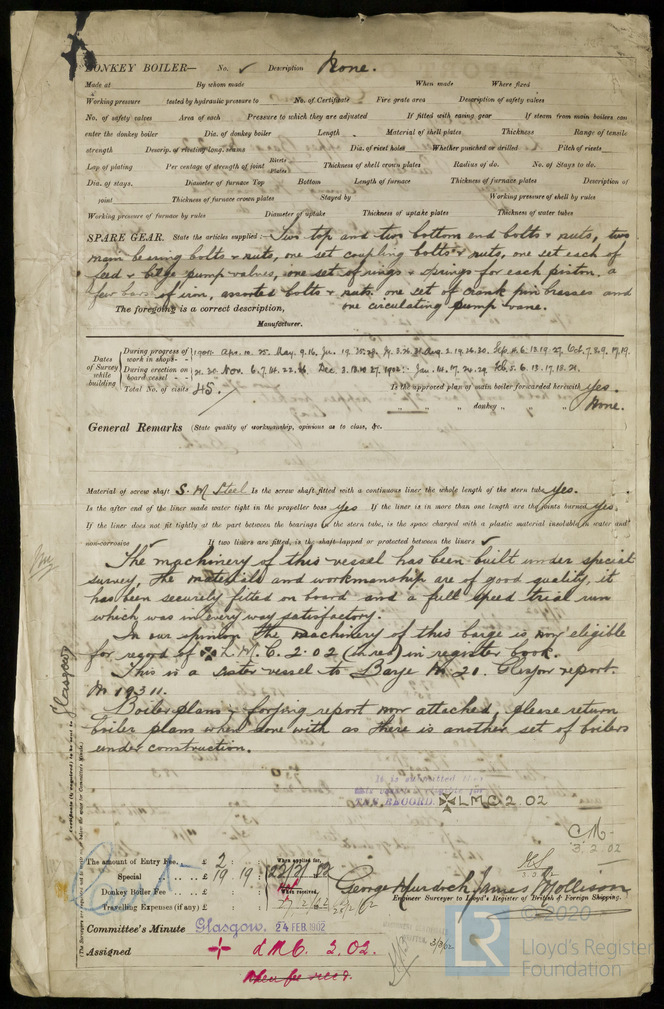 DONKEY BOILER— No. ✓ Description None.
Made at By whom made When made Where fixed
Working pressure tested by hydraulic pressure to No. of Certificate Fire grate area Description of safety valves
No. of safety valves Area of each Pressure to which they are adjusted If fitted with easing gear If steam from main boilers can
enter the donkey boiler Dia. of donkey boiler Length Material of shell plates Thickness Range of tensile
strength Descrip. of riveting long. seams Dia. of rivet holes Whether punched or drilled Pitch of rivets
Lap of plating Per centage of strength of joint Rivets Plates Thickness of shell crown plates Radius of do. No. of Stays to do.
Dia. of stays. Diameter of furnace Top Bottom Length of furnace Thickness of furnace plates Description of
joint Thickness of furnace crown plates Stayed by Working pressure of shell by rules
Working pressure of furnace by rules Diameter of uptake Thickness of uptake plates Thickness of water tubes
SPARE GEAR. State the articles supplied:— Two top and two bottom end bolts & nuts, two
main bearing bolts & nuts, one set coupling bolts & nuts, one set each of
feed & bilge pump valves, one set of rings & springs for each piston, a
few bars of iron, assorted bolts & nuts. one set of crank pin brasses and
one circulating pump vane.
The foregoing is a correct description,
Manufacturer.
Dates of Survey while building
During progress of work in shops - - 1901 Apr. 10. 25. May. 9. 16. Aug. 2. 19. 26. 30. Sep. 4. 6. 13. 19. 27. Oct. 7. 8. 9. 17. 19.
During erection on board vessel - - Nov. 6. 7. Dec. 1902:- Jan. 14. 17. 24. 29. Feb. 5. 6. 13. 17. 18. 21.
Total No. of visits 45. Is the approved plan of main boiler forwarded herewith Yes.
" " " donkey " " None.
General Remarks (State quality of workmanship, opinions as to class, &c.
Material of screw shaft S. M Steel Is the screw shaft fitted with a continuous liner the whole length of the stern tube Yes.
Is the after end of the liner made water tight in the propeller boss Yes If the liner is in more than one length are the joints burned Yes.
If the liner does not fit tightly at the part between the bearings in the stern tube, is the space charged with a plastic material insoluble in water and
non-corrosive ✓ If two liners are fitted, is the shaft lapped or protected between the liners ✓
The machinery of this vessel has been built under special
survey, the materials and workmanship are of good quality, it
has been securely fitted on board and a full speed trial run
which was in every way satisfactory.
In our opinion the machinery of this barge is now eligible
for record of ✠ L.M.C. 2.02 (in red) in register book.
This is a sister vessel to Barge No 21. Glasgow report.
No 19311.
Boiler plans & forging report now attached, please return
boiler plans when done with as there is another set of boilers
under construction.
Glasgow
It is submitted that
this vessel is eligible for
THE RECORD ✠ LMC 2.02
3.2.02
The amount of Entry Fee.. £ 2 : : When applied for,
Special .. .. £ 19 : 19 : 22/2/02
Donkey Boiler Fee .. .. £ : : When received,
Travelling Expenses (if any) £ : :
George Murdoch James Mollison
Engineer Surveyor to Lloyd's Register of British & Foreign Shipping.
Committee's Minute Glasgow. 24 FEB 1902
Assigned + L.M.C. 2.02.
When fee recd.
© 2020
LR
Lloyd's Register
Foundation